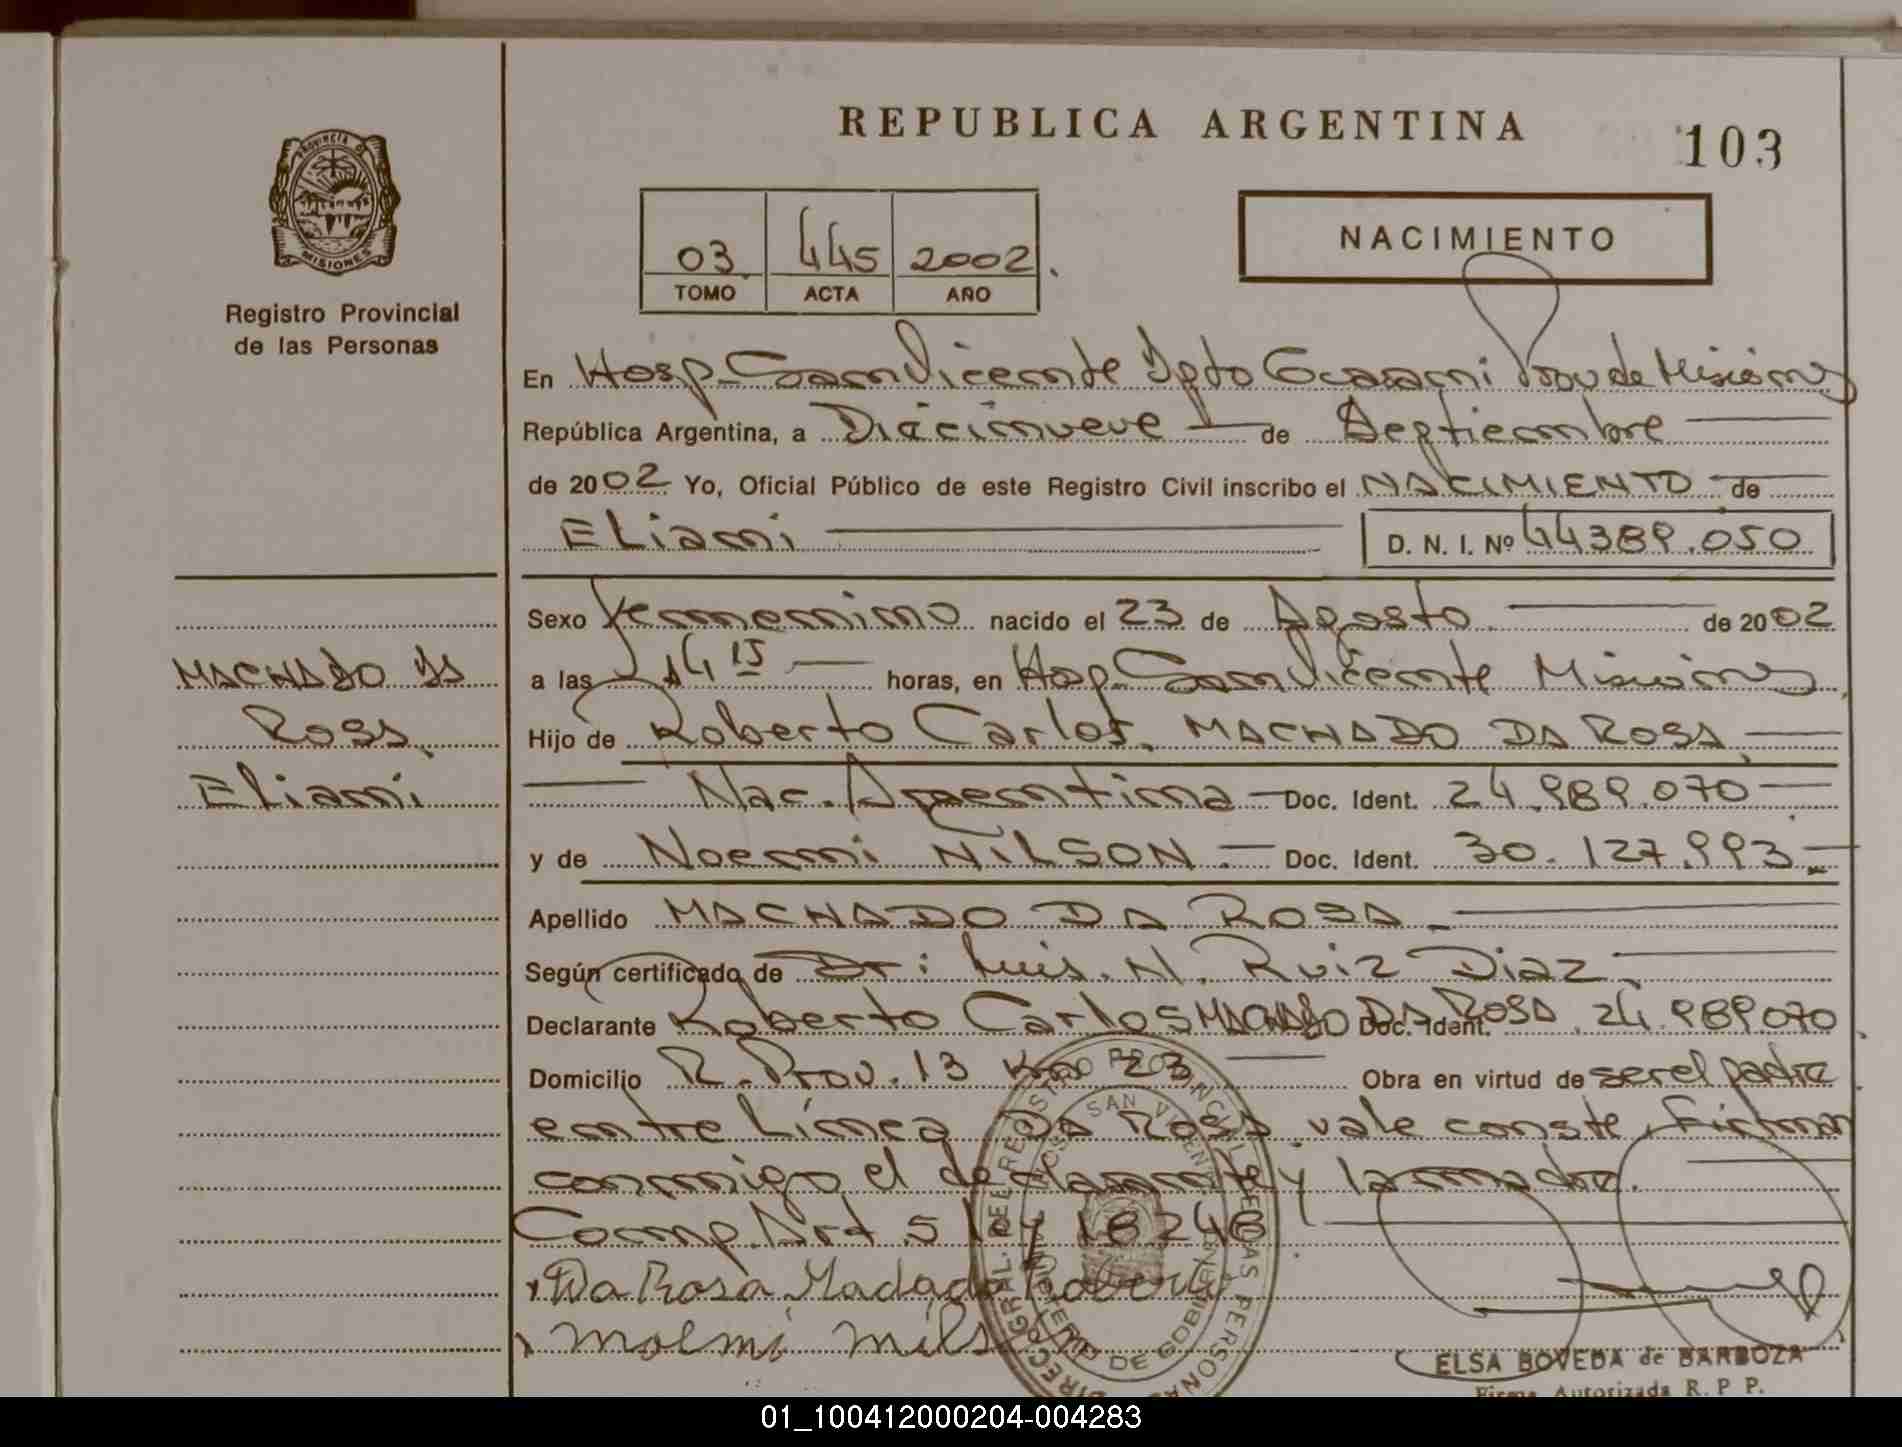 REPUBLICA ARGENTINA
103
PROVINCIA D
MISIONES
Registro Provincial
de las Personas
03 445 2002
TOMO ACTA AÑO
NACIMIENTO
En Hosp. San Vicente Dpto Guarani Prov de Misiones
República Argentina, a Diecinueve de Septiembre
de 2002 Yo, Oficial Público de este Registro Civil inscribo el NACIMIENTO de
Eliani
D. N. I. Nº 44389.050
Sexo femenino nacido el 23 de Agosto de 2002
a las 14 15 horas, en Hosp. San Vicente Misiones
Hijo de Roberto Carlos. MACHADO DA ROSA
Nac. Argentina Doc. Ident. 24.989.070
y de Noemi NILSON. Doc. Ident. 30.127.993
Apellido MACHADO DA ROSA
Según certificado de Dr: Luis. N. Ruiz Diaz
Declarante Roberto Carlos MACHADO DA ROSA Doc. Ident. 24.989.070
Domicilio R. Prov. 13 Km 23 Obra en virtud de ser el padre
entre linea DA ROSA vale conste. Firman
conmigo el declarante y la madre.
Comp. Art. 5 ley 18248
Da Rosa Machado Roberto
noemi nilson
MACHADO DA
Rosa
Eliani
ELSA BOVEDA de BARBOZA
Firma Autorizada R. P. P.
01_100412000204-004283